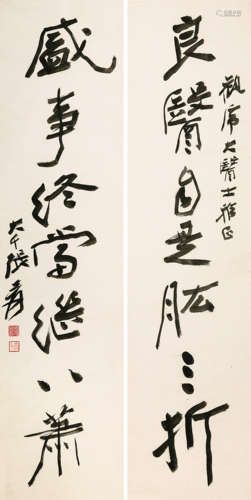 良醫自是肱三折
觀席大醫士雅正
盛事終當繼八蕭
大千張爰